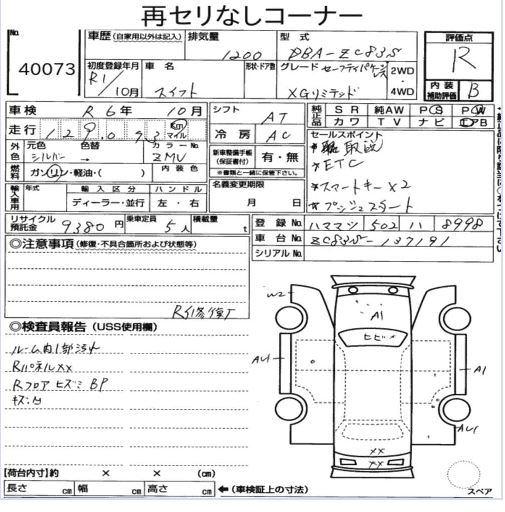 再セリなしコーナー
No. 40073
車歴 (自家用以外は記入) 排気量 1200 型式 DBA-ZC83S 評価点 R
初度登録年月 R1/10月 車名 スイフト 形状・ドア数 グレード セーフティパッケージレス XGリミテッド 2WD 4WD 内装補助評価 B
車検 R6年10月 シフト AT 純正品 SR 純AW PS PW
走行 129,093 Km マイル 冷房 AC カワ TV ナビ PB
外色 元色 シルバー → 色替 カラーNo. ZMV 新車整備手帳 (保証書付) 有・無 セールスポイント
燃料 ガソリン・軽油・( ) 内装色 *書類と一緒に保管して下さい。 取説
輸入車用 年式 輸入区分 ハンドル 名義変更期限 *ETC
ディーラー・並行 左・右 月 日 *スマートキー×2
*プッシュスタート
リサイクル預託金 9380円 乗車定員 5人 積載量 t 登録No. ハママツ 502 ハ 8998
◎注意事項 (修復・不具合箇所および状態等) 車台No. ZC83S-137191
シリアルNo.
R5修復丁
◎検査員報告 (USS使用欄)
ルーム内1部汚れ
Rパネルxx
Rフロアヒズミ BP
キズ凹
W2
A1
ヒビ
AU1
A1
AU1
XX
XX
【荷台内寸】約 × × (cm)
長さ cm 幅 cm 高さ cm ←(車検証上の寸法)
スペア